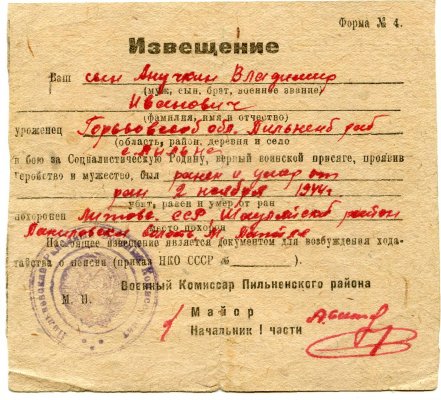 Форма № 4.
Извещение
Ваш сын Анучкин Владимир
(муж, сын, брат, военное звание)
Иванович
(фамилия, имя и отчество)
уроженец Горьковской обл. Пильненск
(область, район, деревня и село
с. Пильна
в бою за Социалистическую Родину, верный воинской присяге, проявив
геройство и мужество, был ранен и умер от
ран 2 ноября 1944г
убит, ранен и умер от ран
похоронен Литовс. ССР Шауляйский район
место похорон
Настоящее извещение является документом для возбуждения хода-
тайства о пенсии (приказ НКО СССР № ).
Военный Комиссар Пильненского района
М. П.
Майор
Начальник 1 части